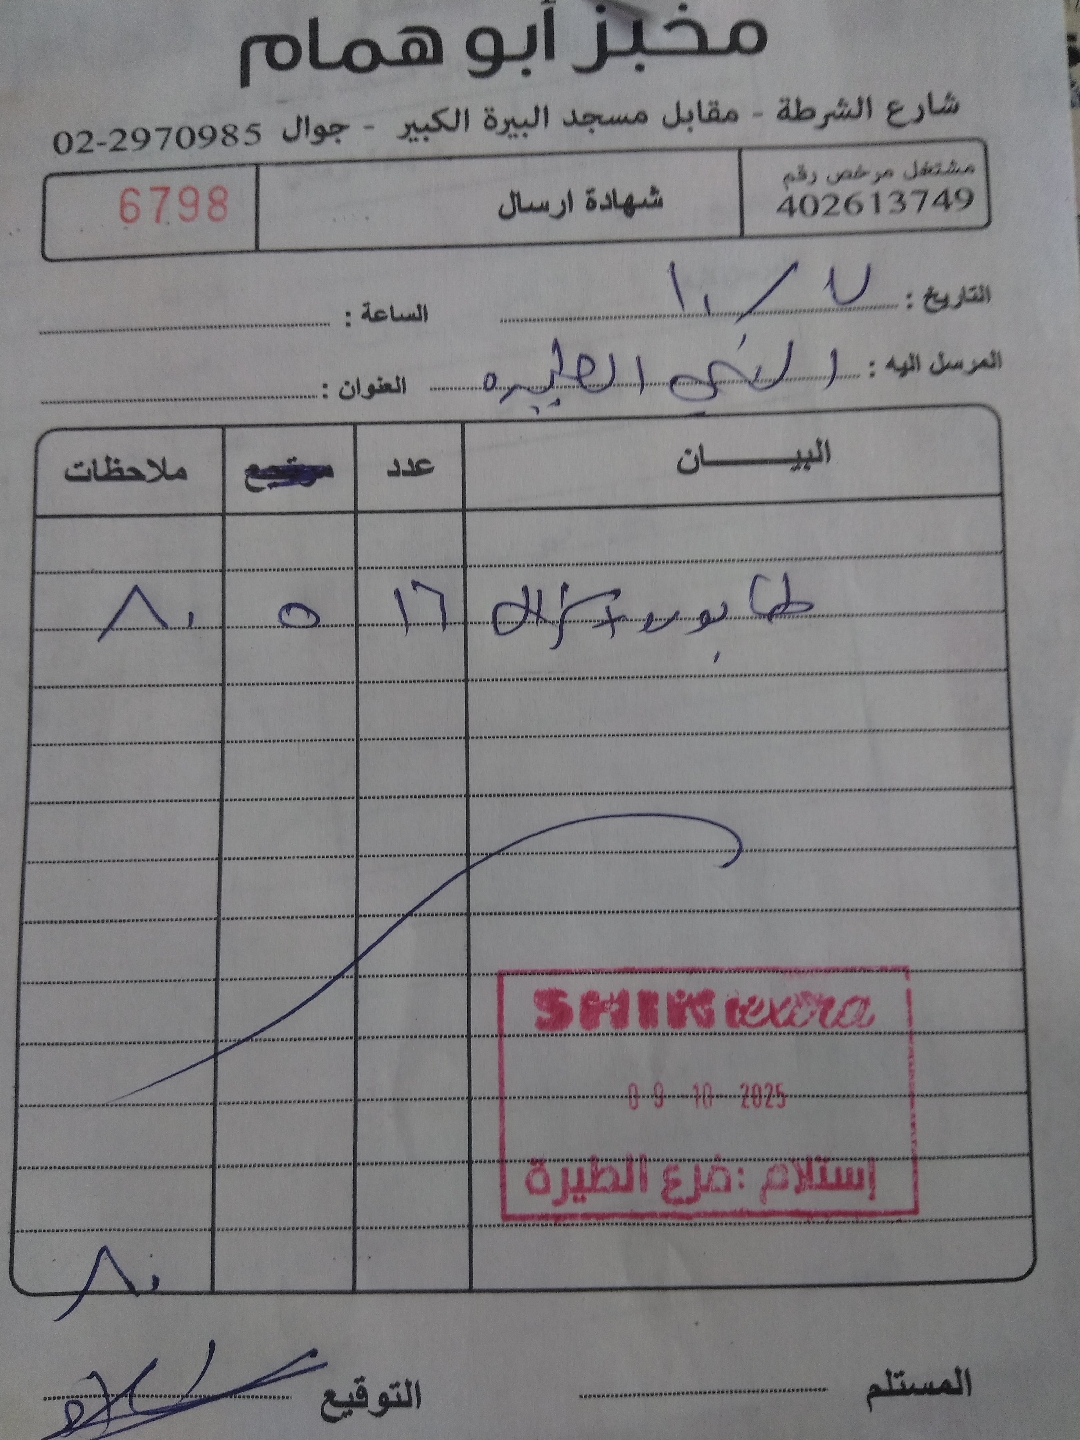 مخبز أبو همام
شارع الشرطة - مقابل مسجد البيرة الكبير - جوال 02-2970985
مشتغل مرخص رقم
402613749
شهادة ارسال
6798
التاريخ : ٧ / ١٠
الساعة :
المرسل اليه : الطيره
العنوان :
البيــــــان عدد مرتجع ملاحظات
طابون ١٦ ٥ ٨٠
SHINI extra
09 10 2025
إستلام : فرع الطيرة
٨٠
المستلم
التوقيع